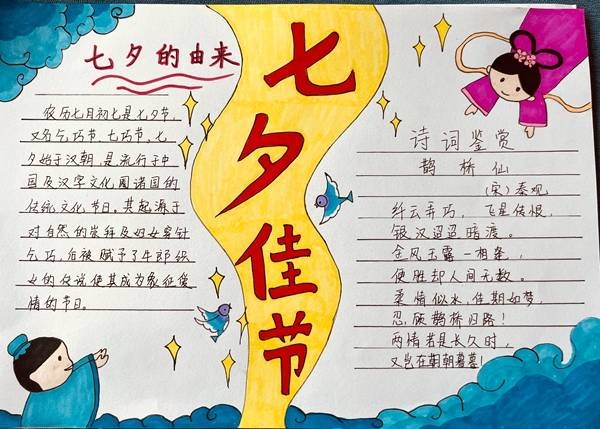 七夕的由来
农历七月初七是七夕节,
又名乞巧节、七巧节、七
夕始于汉朝,是流行于中
国及汉字文化圈诸国的
传统文化节日。其起源于
对自然的崇拜及妇女穿针
乞巧,后被赋予了牛郎织
女的传说使其成为象征爱
情的节日。
七
夕
佳
节
诗词鉴赏
鹊桥仙
(宋)秦观
纤云弄巧,飞星传恨,
银汉迢迢暗渡。
金风玉露一相逢,
便胜却人间无数。
柔情似水,佳期如梦,
忍顾鹊桥归路!
两情若是长久时,
又岂在朝朝暮暮!